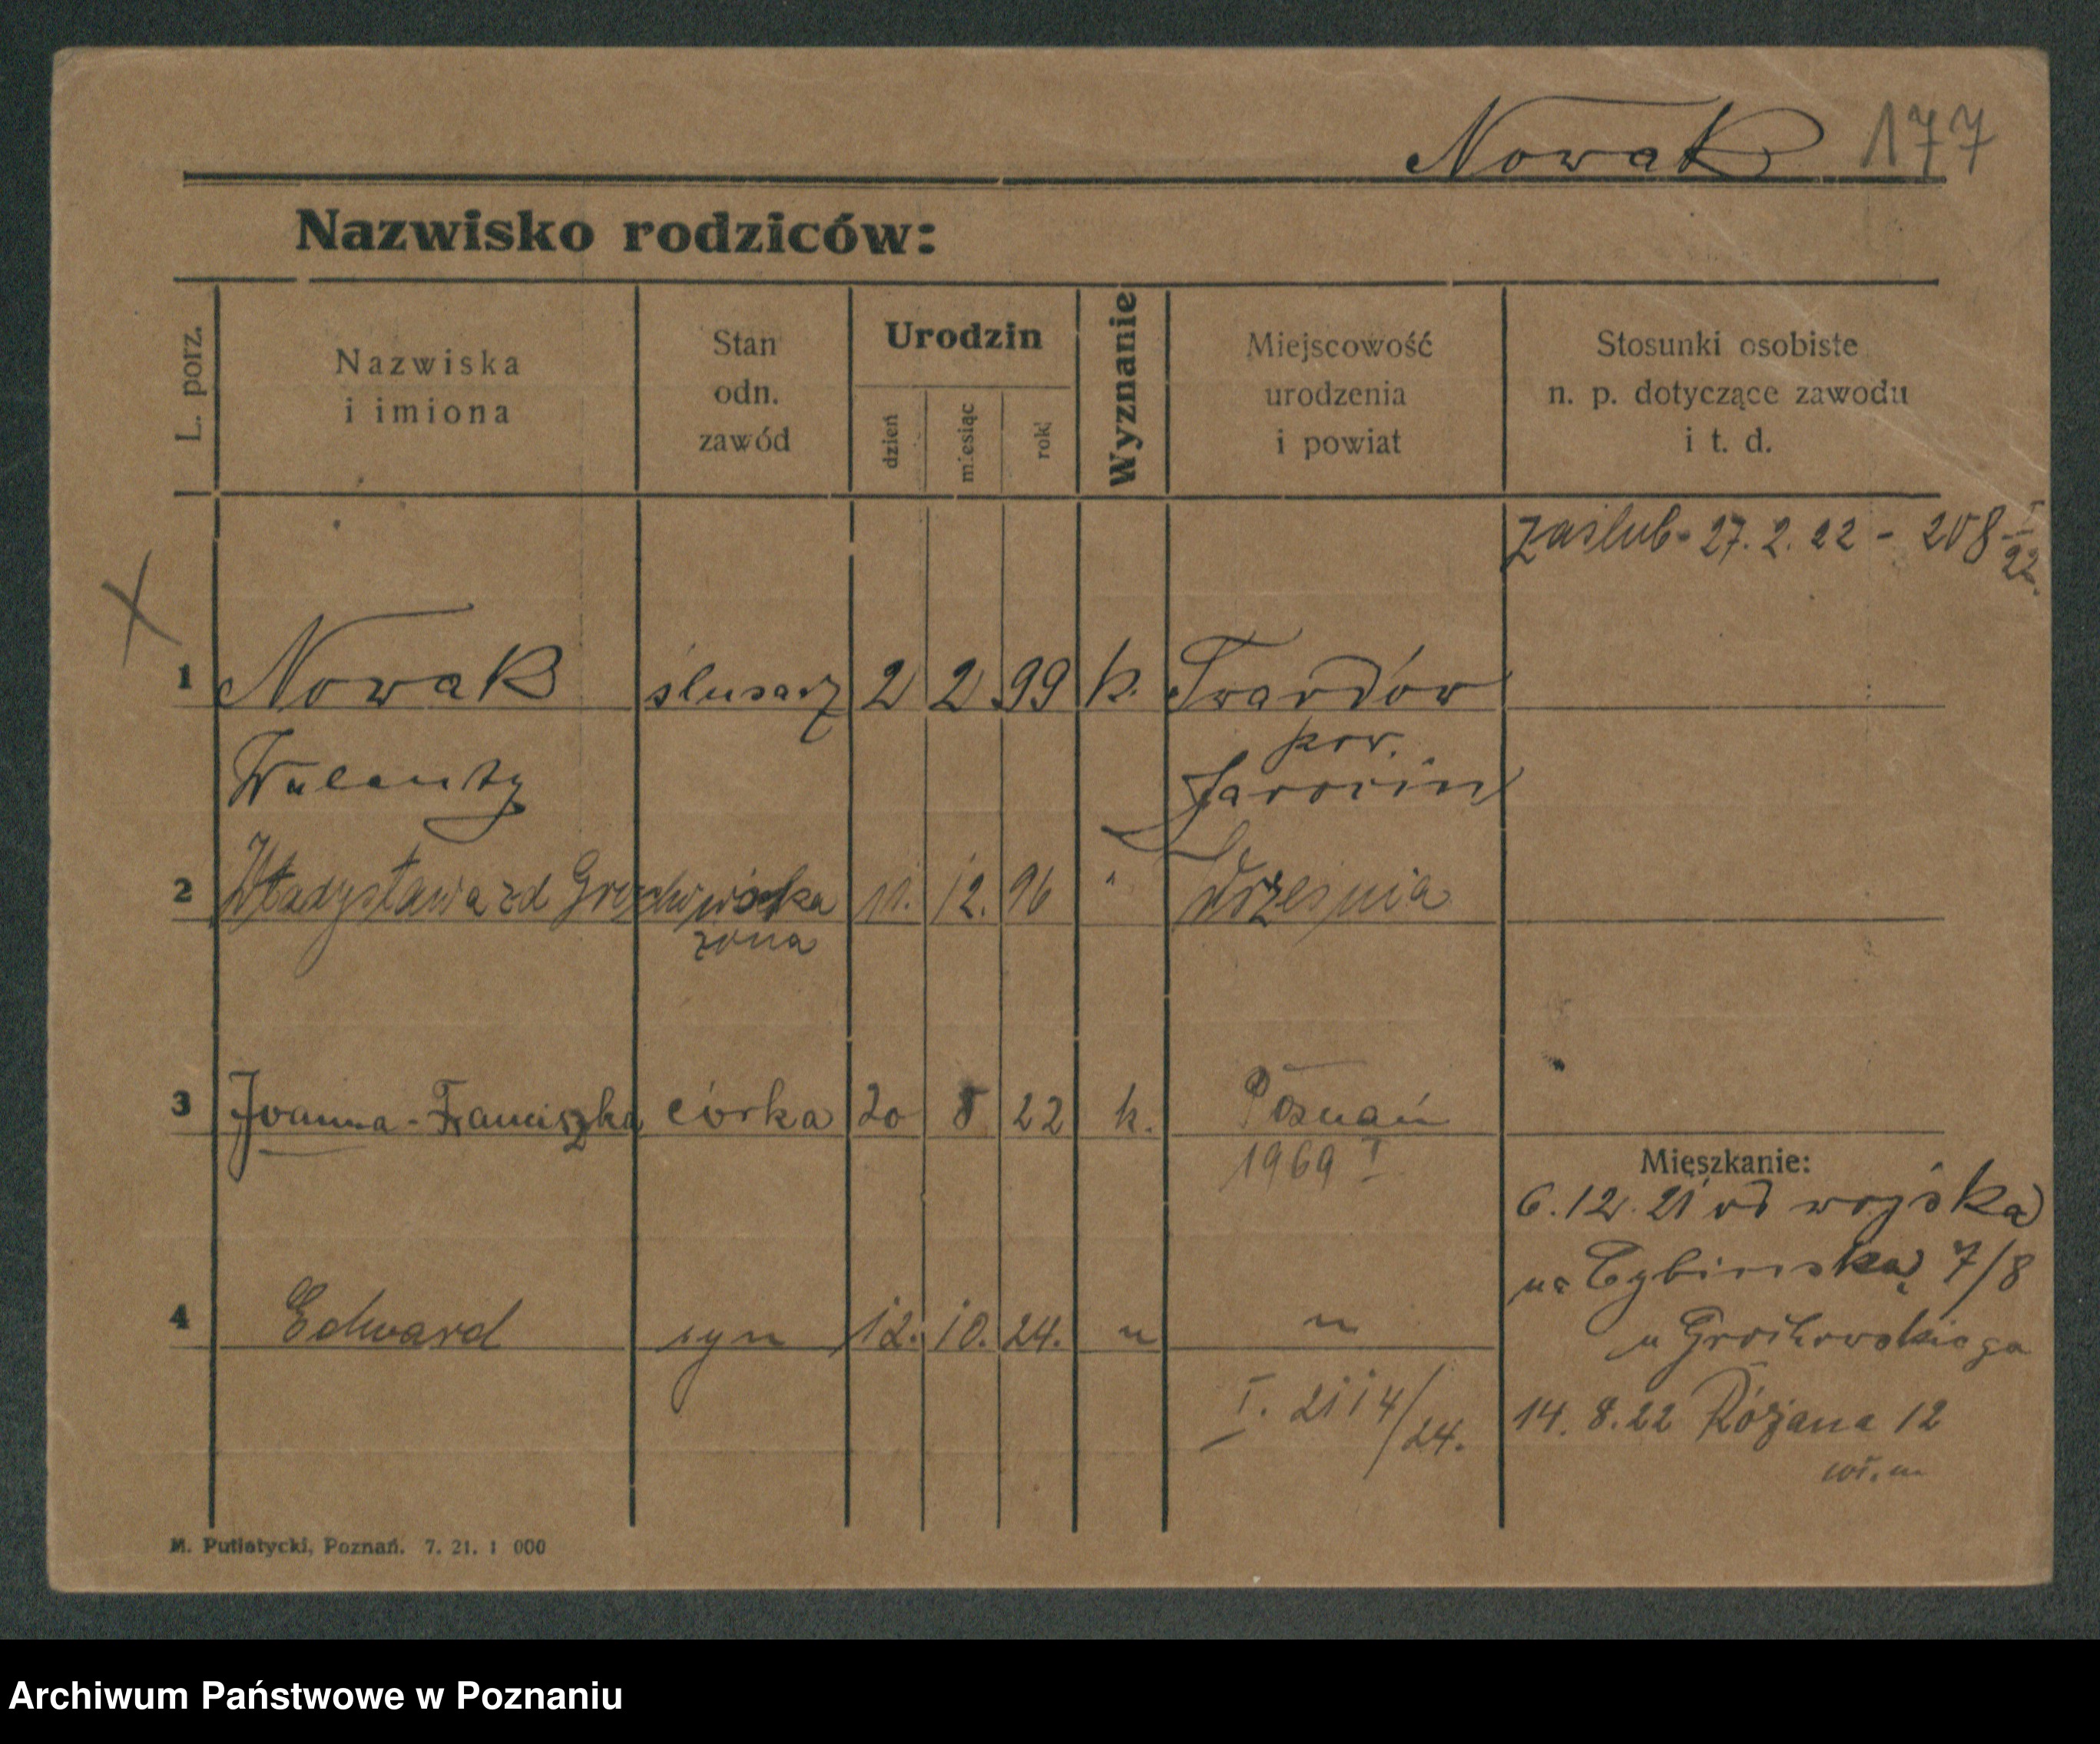 Nowak 177
Nazwisko rodziców:
L. porz.
Nazwiska
i imiona
Stan
odn.
zawód
Urodzin
dzień
miesiąc
rok
Wyznanie
Miejscowość
urodzenia
i powiat
Stosunki osobiste
n. p. dotyczące zawodu
i t. d.
zaślub. 27. 2. 22 - 208 I/22.
X
1 Nowak ślusarz 2 2 99 k. Twardów
pow.
Walenty Jarocin
2 Władysława zd Grochowska 11. 12. 96 " Września
żona
3 Joanna-Franciszka córka 20 8 22 k. Poznań
1969 I
Mieszkanie:
6. 12. 21 od wojska
na Cybińską 7/8
u Grochowskiego
4 Edward syn 12. 10. 24. " "
I. 2114/24.
14. 8. 22 Różana 12
M. Putiatycki, Poznań. 7. 21. 1 000
Archiwum Państwowe w Poznaniu